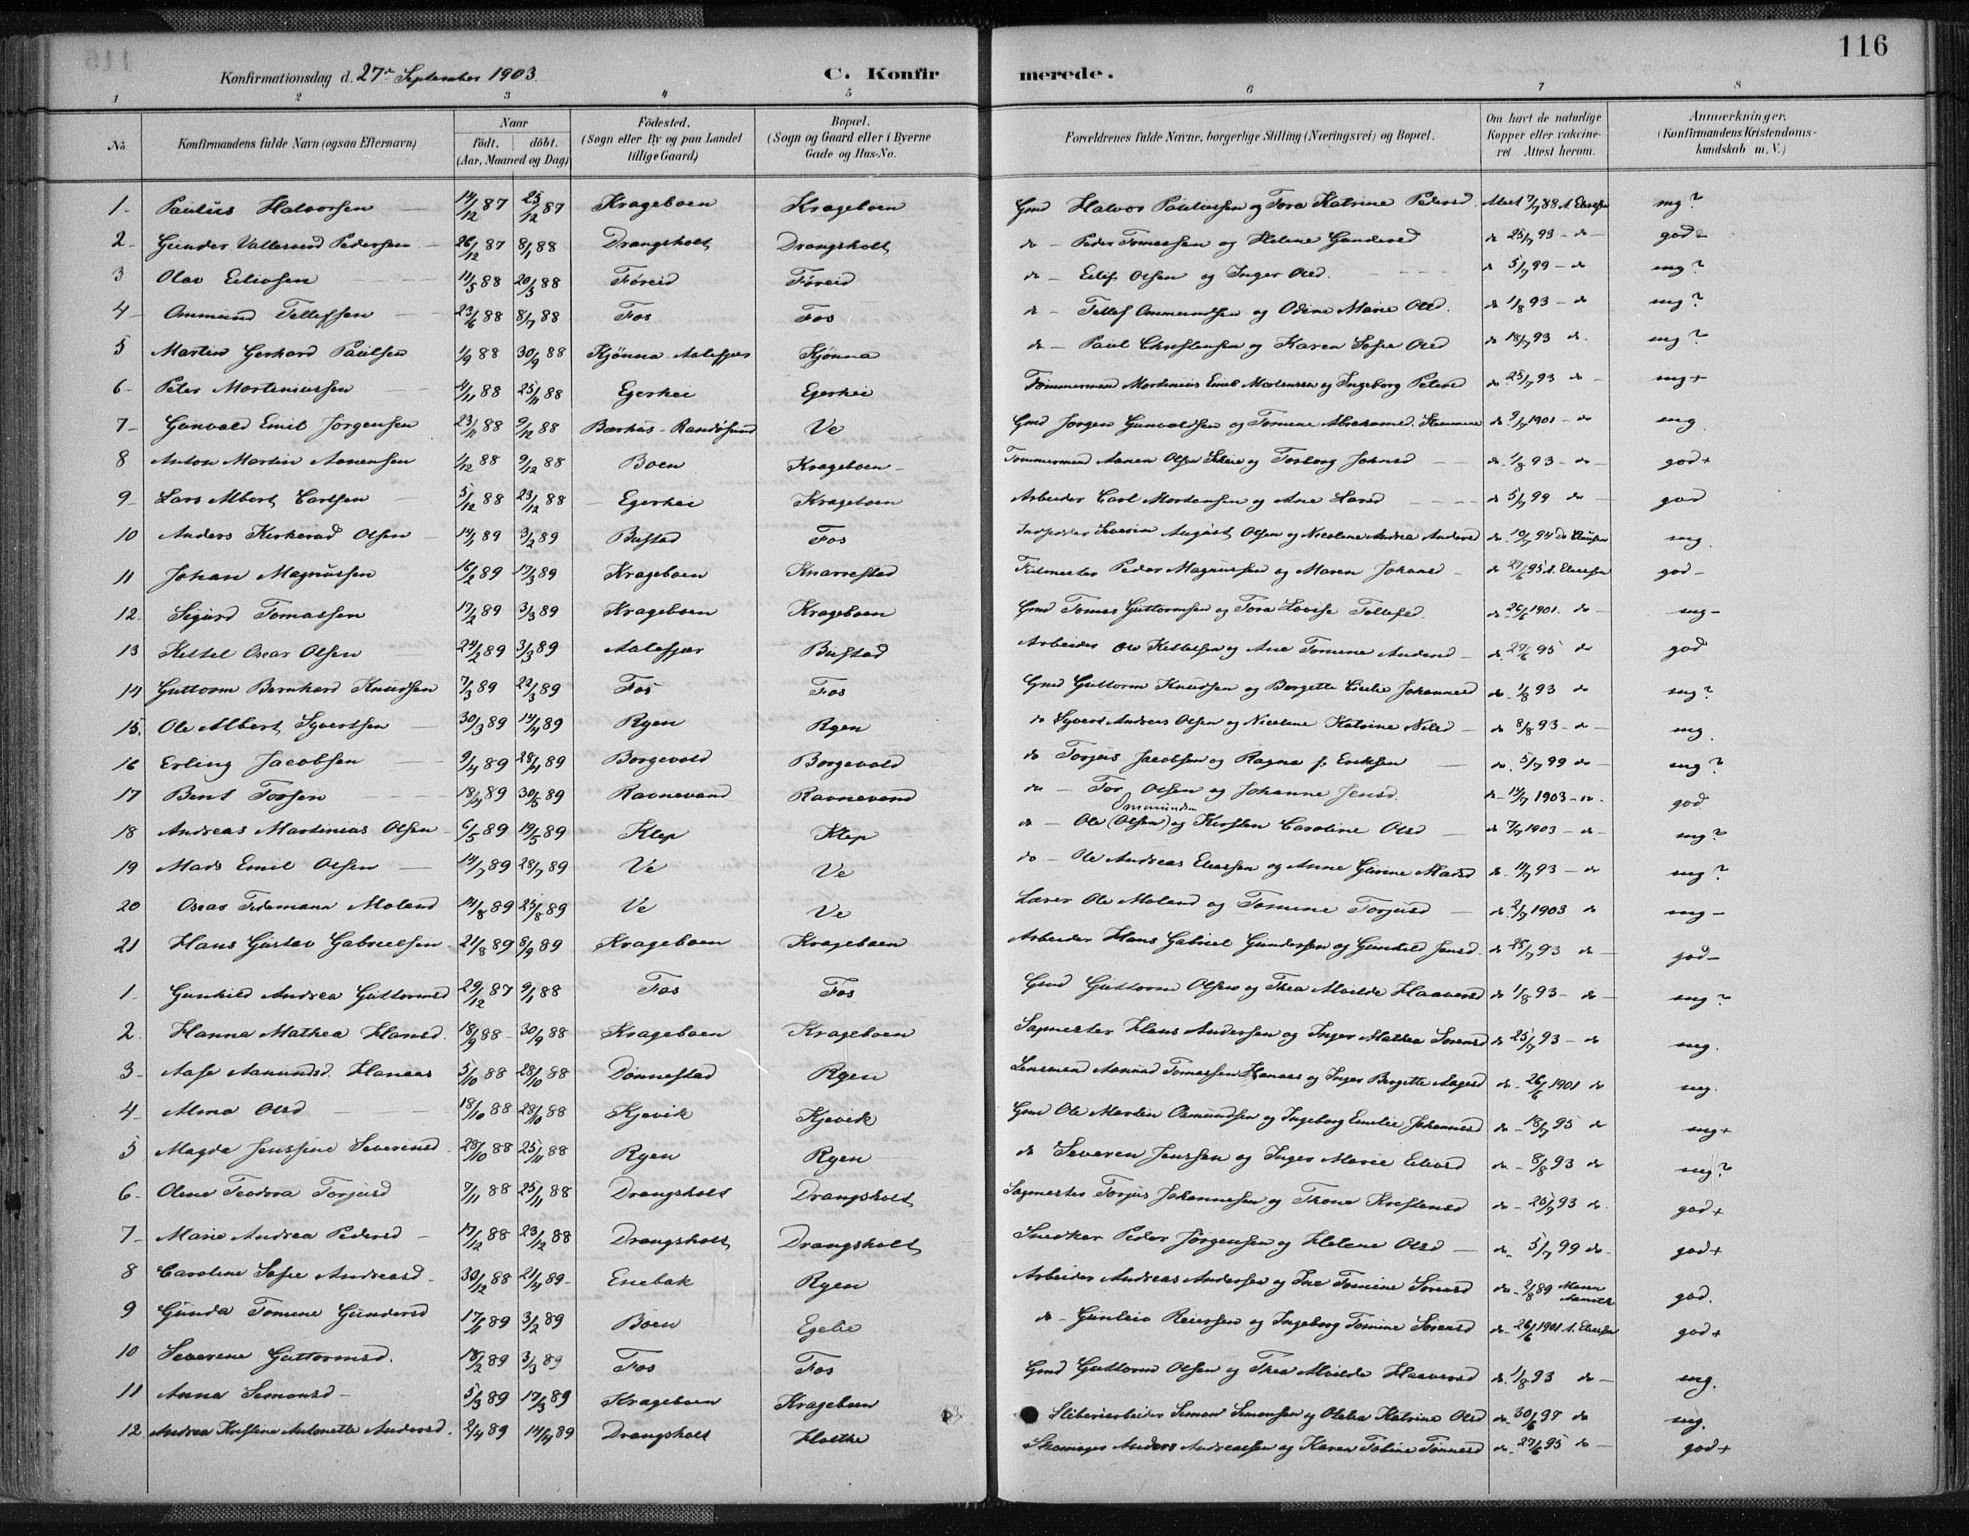 116
Konfirmationsdag d. 27de September 1903. C. Konfirmerede.
1 2 3 4 5 6 7 8
No. Konfirmandens fulde Navn (ogsaa Efternavn) Naar født. døbt. (Aar, Maaned og Dag) Fødested. (Sogn eller By og paa Landet tillige Gaard) Bopæl. (Sogn og Gaard eller i Byerne Gade og Hus-No. Forældrenes fulde Navne, borgerlige Stilling (Næringsvei) og Bopæl. Om havt de naturlige Kopper eller vakcineret. Attest herom. Anmærkninger. (Konfirmandens Kristendomskundskab m. V.)
1 - Paulus Halvorsen 14/12 87 25/12 87 Krageboen Krageboen Gmd Halvor Paulussen og Tora Katrine Pedersd. Attest 7/7 88 A. Eliassen mg?
2 - Gunder Valleraad Pedersen 26/12 87 8/1 88 Drangsholt Drangsholt do - Peder Tomassen og Helene Gundersd do 25/7 93 - do god -
3 Olav Eilivsen 11/5 88 20/5 88 Føreid Føreid do - Eilif Olsen og Inger Olsd. do 5/7 99 - do mg?
4 - Ommund Tellefsen 23/6 88 8/7 88 Fos Fos do - Tellef Ommundsen og Odine Marie Olsd. do 1/8 93 - do mg?
5 Martin Gerhard Paulsen 1/9 88 30/9 88 Kjønna Aalefjær Kjønna do - Paul Christensen og Karen Sofie Olsd do 18/7 93 do. mg?
6 - Peter Morteniussen 4/11 88 25/11 88 Egerhei Egerhei Tømmermand Mortenius Emil Mortensen og Ingeborg Petersd do 25/7 93 do mg+
7 - Gunvald Emil Jørgensen 23/11 88 9/12 88 Bærhus - Randøsund Ve Gmd Jørgen Gunvaldsen og Tomine Abrahamsd. do 9/7 1901 - do mg
8 Anton Martin Aanensen 1/12 88 9/12 88 Boen Krageboen - Tømmermand Aanen Olsen og Torborg Johnsd do 1/8 93 - do god+
9 - Lars Albert Carlsen 5/12 88 23/12 88 Egerhei Krageboen Arbeider Carl Mortensen og Ane Larsd do 5/7 99 do god
10 Anders Kirkerud Olsen 14/1 89 3/2 89 Bustad Fos Severin August Olsen og Nicoline Andrea Andersd do 10/7 94 mg.
11 Johan Magnussen 16/2 89 17/3 89 Krageboen Knarrestad Peder Magnussen og Maren Johansd do 27/6 95 A. Eliassen god -
12. Sigurd Tomassen 17/2 89 3/3 89 Krageboen Krageboen Gmd Tomas Guttormsen og Tora Lovise Tellefsd. do 26/6 1901. do mg -
13 Kittel Oscar Olsen 24/2 89 3/3 89 Aalefjær Bustad Arbeider Ole Kittelsen og Ane Tomine Andersd do. 27/6 95 do god
14 Guttorm Bernhard Knudsen 7/3 89 22/3 89 Fos Fos Gmd Guttorm Knudsen og Borgette Emilie Johannesd do 1/8 93 do mg?
15. Ole Albert Syvertsen 30/3 89 14/4 89 Ryen Ryen do Syvert Andreas Olsen og Nicoline Katrine Nilsd do 8/8 93 - do mg.
16 Erling Jacobsen 9/4 89 28/4 89 Borgevold Borgevold do Torjus Jacobsen og Ragna f. Eriksen do. 5/7 99 do mg?
17 Bent Torsen 18/4 89 30/5 89 Ravnevand Ravnevand do - Tor Olsen og Johanne Jensd. do - 14/7 1903 - do. god
18 Andreas Martinius Olsen 6/5 89 19/5 89 Klep Klep do - Ole (Olsen) Ommundsen og Kirsten Caroline Olsd do 7/7 1903 - do mg?
19 Mads Emil Olsen 14/7 89 28/7 89 Ve Ve do - Ole Andreas Eliassen og Anne Gurine Madsd do. 14/7 93 - do mg?
20 Oscar Tidemann Moland 14/8 89 25/8 89 Ve Ve Lærer Ole Moland og Tomine Torjusd do. 2/7 1903 do mg -
21 Hans Gustav Gabrielsen 21/8 89 8/9 89 Krageboen Krageboen Arbeider Hans Gabriel Gundersen og Gunhild Jensd. do 25/7 93 do god -
1. Gunhild Andrea Guttormsd 29/12 87 9/1 88 Fos Fos Gmd Guttorm Olsen og Thea Alvilde Haaversd do 1/8 93 - do mg?
2. Hanna Mathea Hansd. 18/9 88 30/9 88 Krageboen Krageboen Sagmester Hans Andersen og Inger Mathea Sørensd do 25/7 93 - do mg.
3 - Aase Aanundsd. Hanaas 5/10 88 28/10 88 Dønnestad Ryen Lensmand Aanund Tomassen Hanaas og Inger Bergette Aagesd do - 26/6 1901 do mg.
4 - Alma Olsd 18/10 88 28/10 88 Kjevik Kjevik Gmd Ole Martin Osmundsen og Ingeborg Emilie Johannesd do - 18/7 95 do mg+
5 Magda Jensine Severinsd 28/10 88 25/11 88 Ryen Ryen do Severin Jenssen og Inger Marie Eilivsd do - 8/8 93 do mg?
6 - Olene Teodora Torjusd 7/11 88 25/11 88 Drangsholt Drangsholt Sagmester Torjus Johannesen og Trone Kristensd do - 25/7 93 do. god+
7 - Marie Andrea Pedersd - 17/12 88 23/12 88 Drangsholt Drangsholt Snedker Peder Jørgensen og Helene Olsd - do. 5/7 99 do - god+
8 Caroline Sofie Andreasd. 30/12 88 21/4 89 - Enebak Ryen Arbeider Andreas Andersen og Ine Tomine Sørensd do - 2/8 89 god.
9 Gunda Tomine Gundersd 17/1 89 3/2 89 Boen Egelie do - Gunleiv Reiersen og Ingeborg Tomine Sørensd do - 26/6 1901 A. Eliassen god+
10 Severine Guttormsd. 18/2 89 3/3 89 Fos Fos Gmd Guttorm Olsen og Thea Alvilde Haaversd do. 1/8 93 do mg.
11 Anna Simonsd - 5/3 89 17/3 89 Krageboen Krageboen Sliberiarbeider Simon Simonsen og Olelia Katrine Olsd do. 30/6 97 do mg.
12. Andrea Kristine Antonette Andersd. 2/4 89 14/4 89 Drangsholt Holthe Skomager Anders Andreassen og Karen Tobine Tønnesd do - 27/6 95 do god+